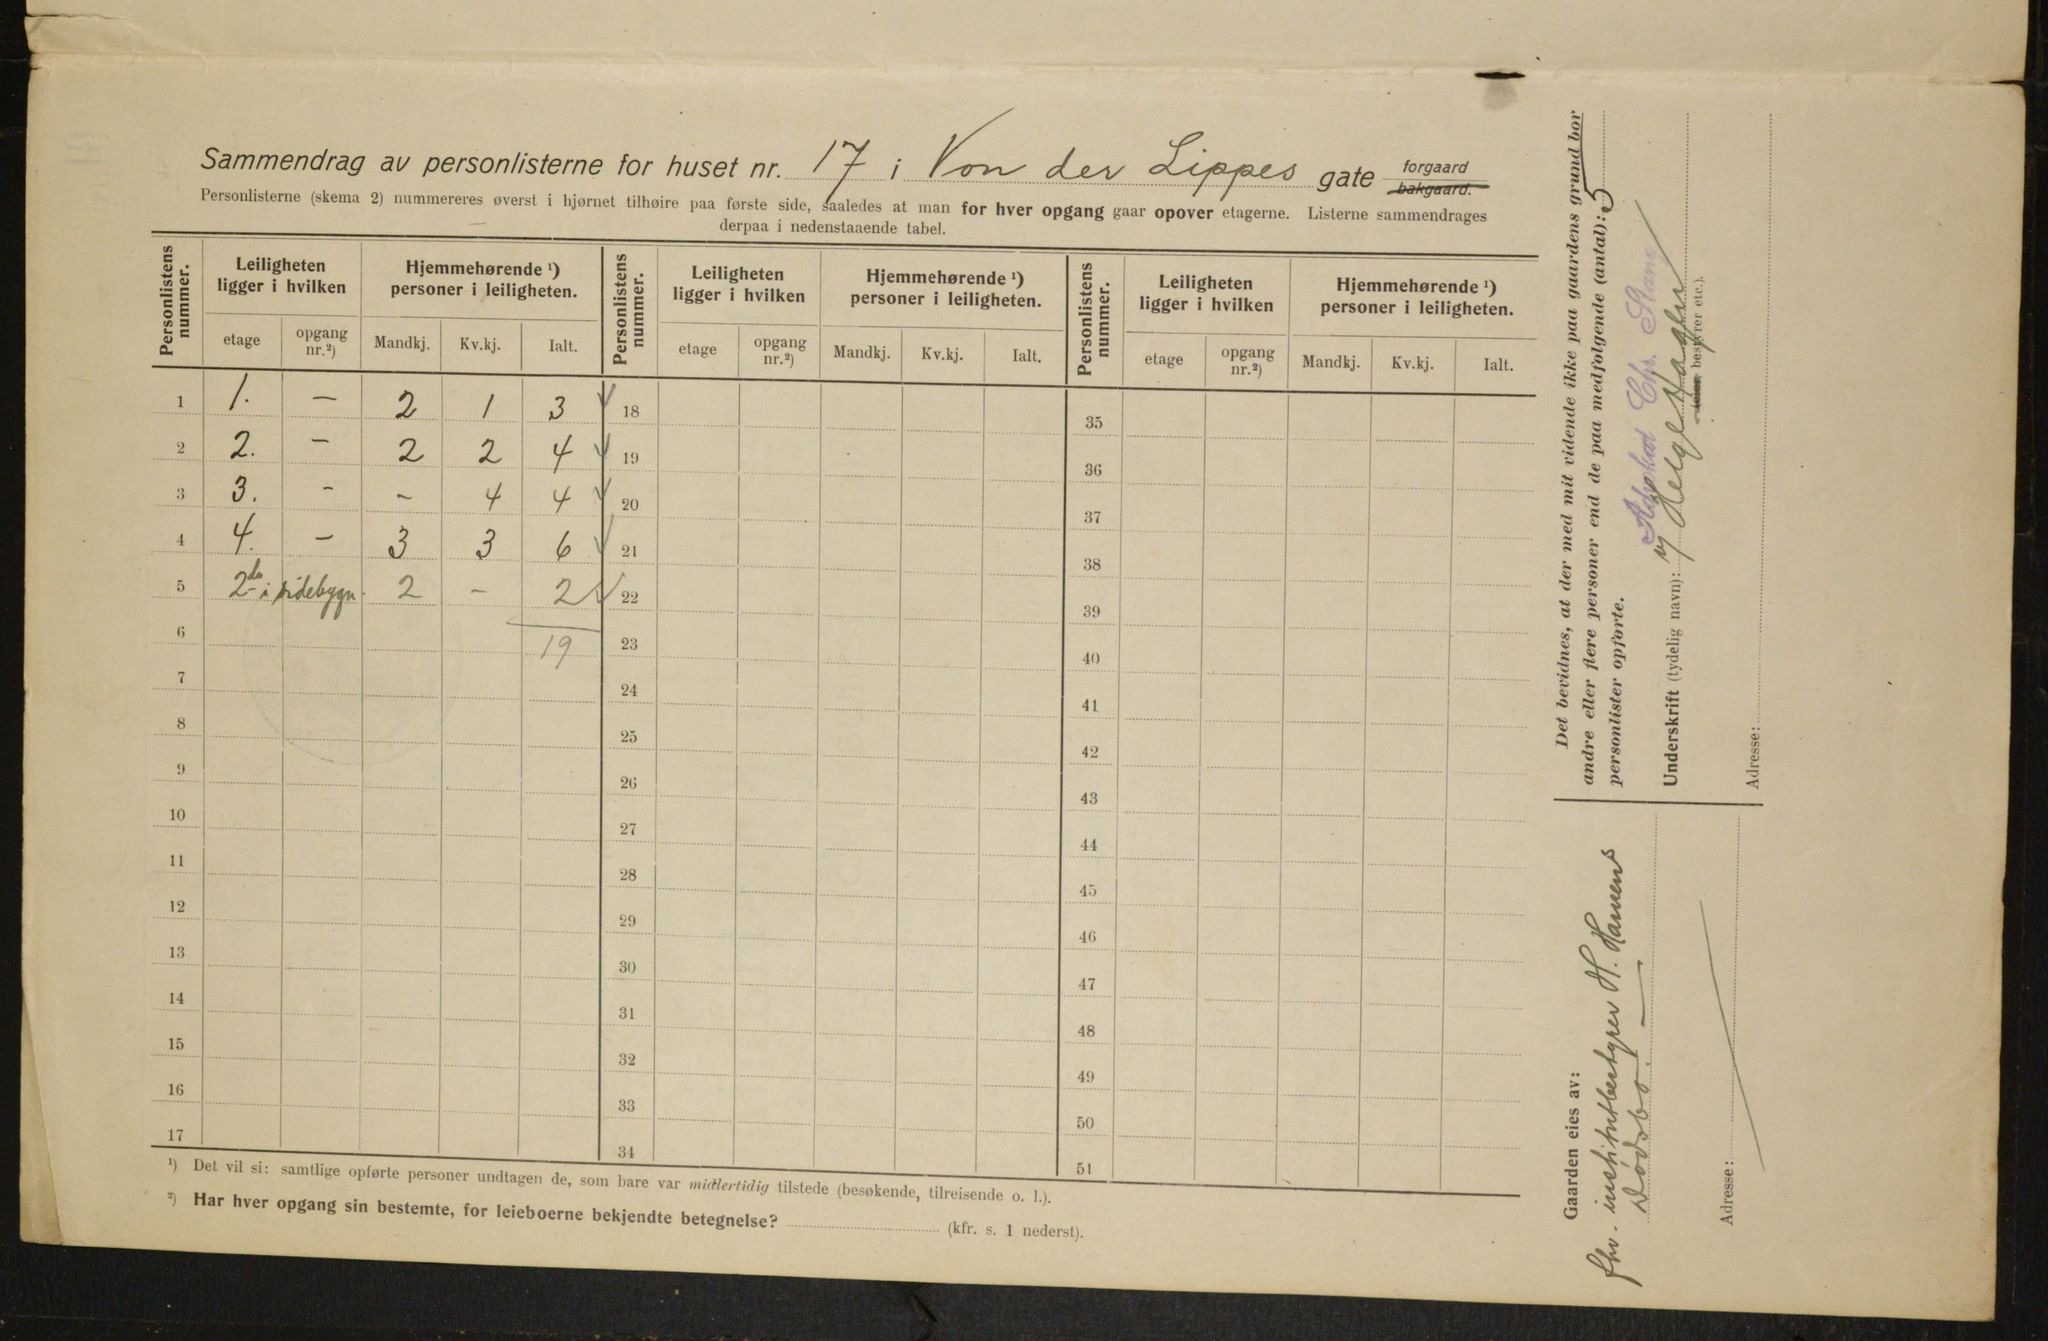 Sammendrag av personlisterne for huset nr. 17 i Von der Lippes gate forgaard bakgaard.
Personlisterne (skema 2) nummereres øverst i hjørnet tilhøire paa første side, saaledes at man for hver opgang gaar opover etagerne. Listerne sammendrages
derpaa i nedenstaaende tabel.
Personlistens nummer. Leiligheten ligger i hvilken Hjemmehørende ¹) personer i leiligheten. Personlistens nummer. Leiligheten ligger i hvilken Hjemmehørende ¹) personer i leiligheten. Personlistens nummer. Leiligheten ligger i hvilken Hjemmehørende ¹) personer i leiligheten.
etage opgang nr.²) Mandkj. Kv.kj. Ialt. etage opgang nr.²) Mandkj. Kv.kj. Ialt. etage opgang nr.²) Mandkj. Kv.kj. Ialt.
1 1. – 2 1 3 18 35
2 2. – 2 2 4 19 36
3 3. – – 4 4 20 37
4 4. – 3 3 6 21 38
5 2de i sidebygn. 2 – 2 22 39
6 19 23 40
7 24 41
8 25 42
9 26 43
10 27 44
11 28 45
12 29 46
13 30 47
14 31 48
15 32 49
16 33 50
17 34 51
¹) Det vil si: samtlige opførte personer undtagen de, som bare var midlertidig tilstede (besøkende, tilreisende o. l.).
²) Har hver opgang sin bestemte, for leieboerne bekjendte betegnelse? (kfr. s. 1 nederst).
Det bevidnes, at der med mit vidende ikke paa gaardens grund bor
andre eller flere personer end de paa medfølgende (antal): 5
personlister opførte.
Underskrift (tydelig navn):
Helge
bestyrer etc.).
Adresse:
Gaarden eies av:
fhv. institutbestyrer H. Hansens
Dødsbo.
Adresse: